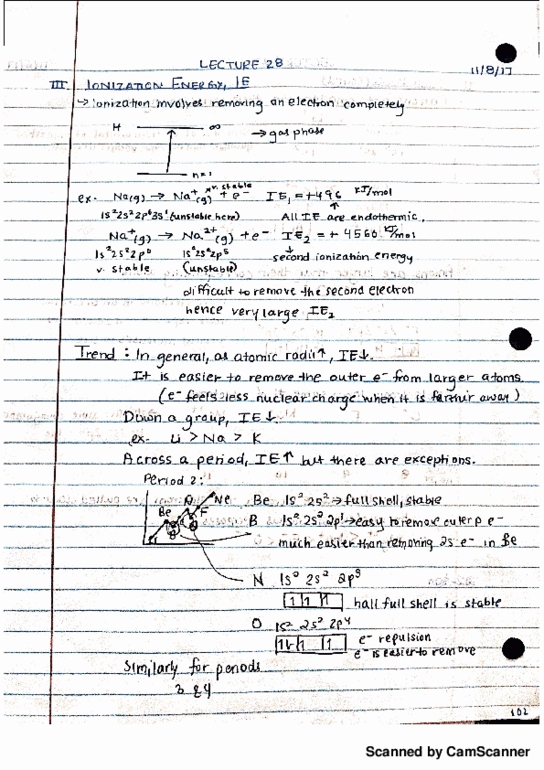 LECTURE 28
11/8/17
III IONIZATION ENERGY, IE
→ Ionization involves removing an electron completely
H ∞ → gas phase
n=1
ex. Na(g) → Na⁺(g) + e⁻ IE₁ = +496 kJ/mol
v. stable
1s²2s²2p⁶3s¹ (unstable here) All IE are endothermic.
Na⁺(g) → Na²⁺(g) + e⁻ IE₂ = + 4560 kJ/mol
1s²2s²2p⁶ 1s²2s²2p⁵ second ionization energy
v. stable (unstable)
difficult to remove the second electron
hence very large IE₂
Trend : In general, as atomic radii↑, IE↓.
It is easier to remove the outer e⁻ from larger atoms.
(e⁻ feels less nuclear charge when it is farther away)
Down a group, IE↓.
ex- Li > Na > K
Across a period, IE↑ but there are exceptions.
Period 2:
Be N F Ne
Be 1s² 2s² → full shell, stable
B 1s² 2s² 2p¹ → easy to remove outer p e⁻
much easier than removing 2s e⁻ in Be
N 1s² 2s² 2p³
1 1 1 half full shell is stable
O 1s² 2s² 2p⁴
1L 1 1 e⁻ repulsion
e⁻ is easier to remove
Similarly for periods
3 & 4
102
Scanned by CamScanner